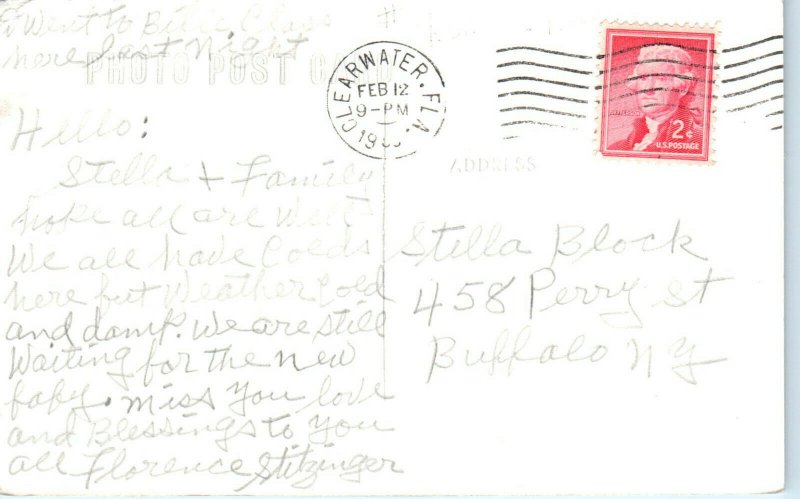 I Went to Bible Class
here last Night
PHOTO POST CARD
Hello:
Stella + Family
hope all are Well
We all have Colds
here but Weather Cold
and damp. We are still
Waiting for the new
baby. Miss You love
and Blessings to You
all Florence Stitzinger
CLEARWATER, FLA.
FEB 12
9-PM
JEFFERSON
2¢
U.S. POSTAGE
ADDRESS
Stella Block
458 Perry St
Buffalo NY